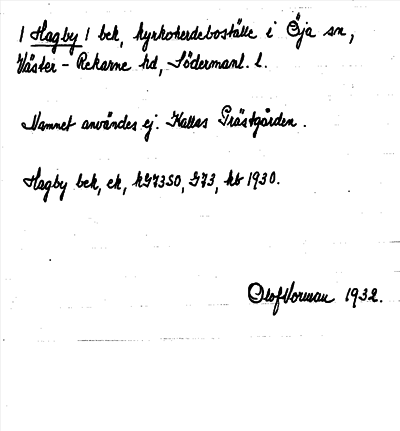 / Hagby / bek, kyrkoherdeboställe i Öja sn,
Väster-Rekarne hd, Södermanl. l.
Namnet användes ej. Kallas Prästgården.
Hagby bek, ek, kG7350, G73, kb 1930.
Olof Norman 1932.